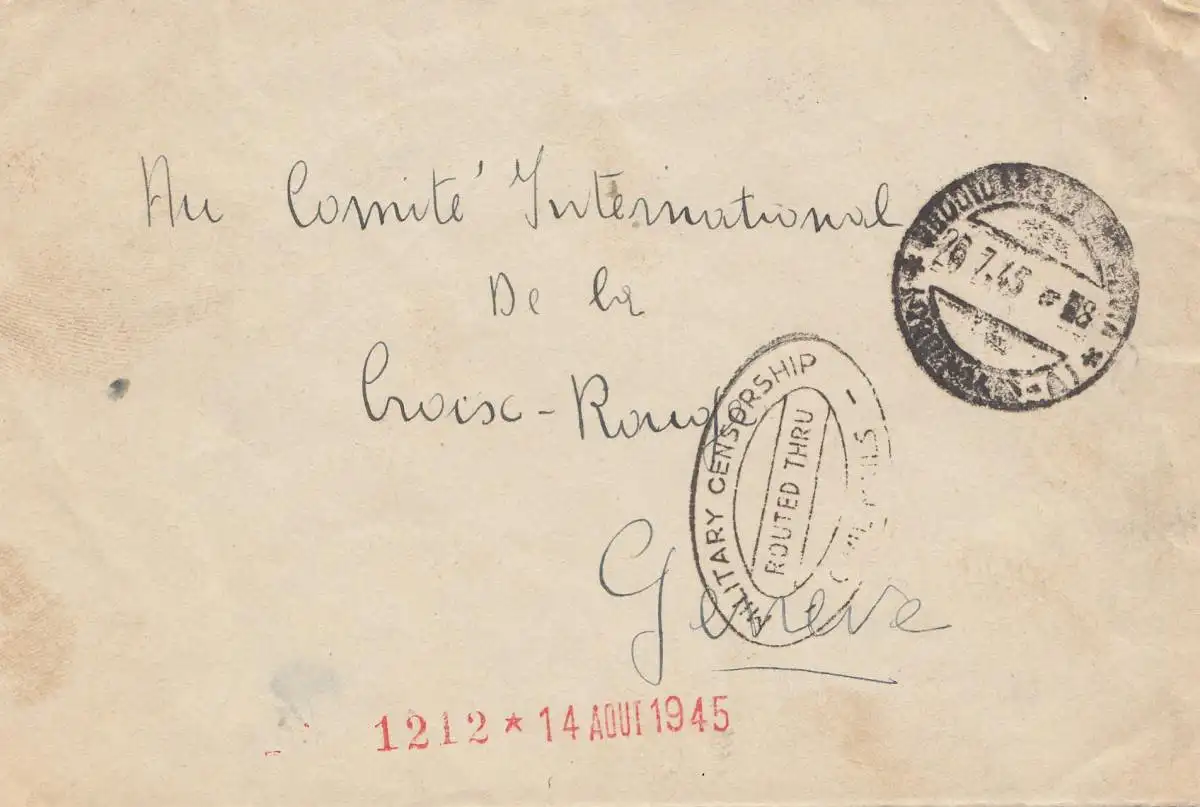 Au Comité International
De la
Croix-Rouge
Genève
26.7.45
MILITARY CENSORSHIP
CIVIL MAILS
ROUTED THRU
1212 * 14 AOUT 1945